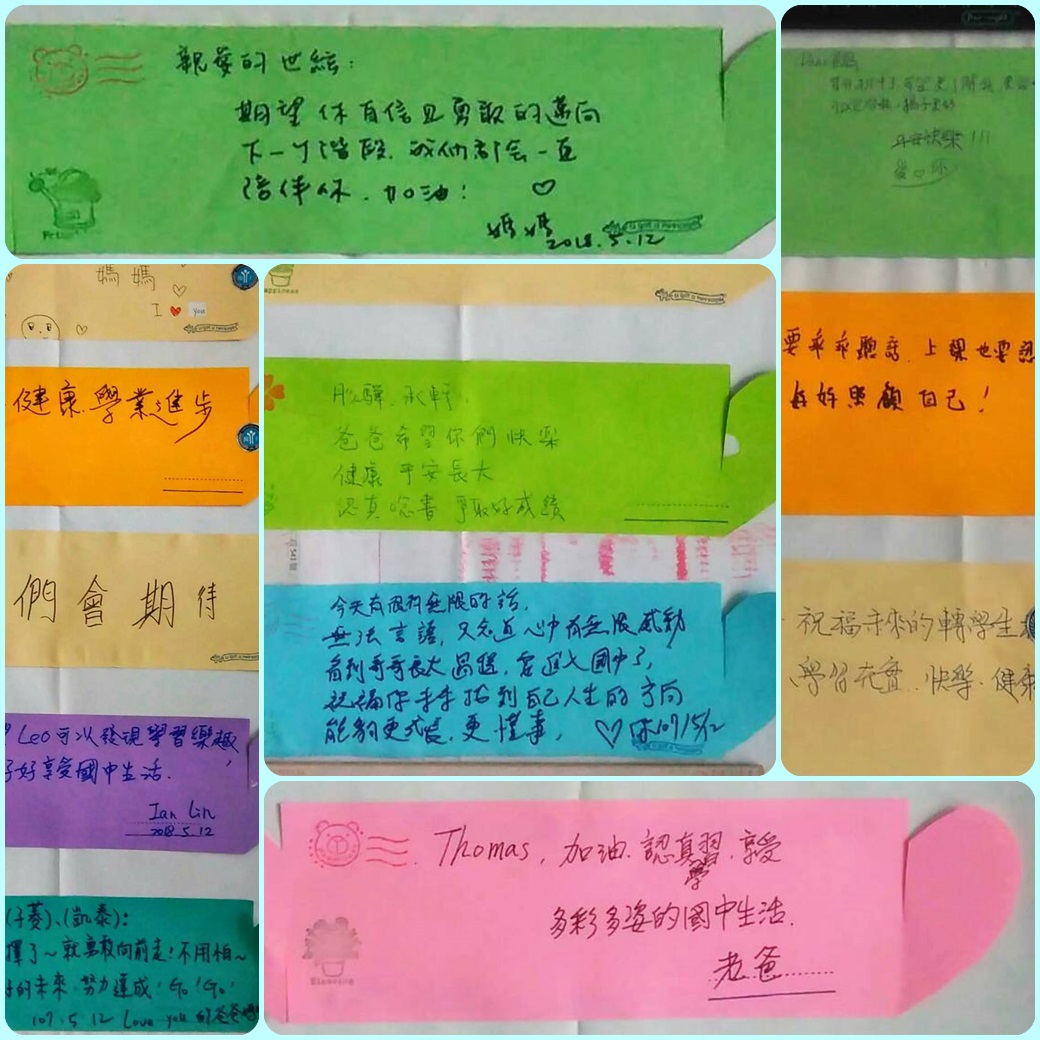 親愛的世紘:
期望你有信且勇敢的邁向
下一个階段,我們都會一直
陪伴你,加油! ♡
媽媽
2018.5.12
平安快樂!!!
愛♡你
媽媽 ♡
I ♥ you
健康,學業進步
們會期待
Leo可以發現學習樂趣,
好享受國中生活.
Ian Lin
2018.5.12
(子菱)、(凱泰):
擇了~就勇敢向前走!不用怕~
的未來,努力達成!Go!Go!
107.5.12 Love you 的爸爸
承軒,
爸爸希望你們快樂
健康 平安長大
認真唸書 爭取好成績
今天有很有無限的話,
無法言語,只知道心中有無限感動
看到哥哥長大過程,要進入國中了,
祝福你未來找到自己人生的方向
能夠更成長,更懂事, ♡ 107/5/12
要乖乖聽話,上課也要認
好好照顧自己!
祝福未來的轉學生
學習充實、快樂、健康
Thomas,加油.認真學習,享受
多彩多姿的國中生活.
老爸